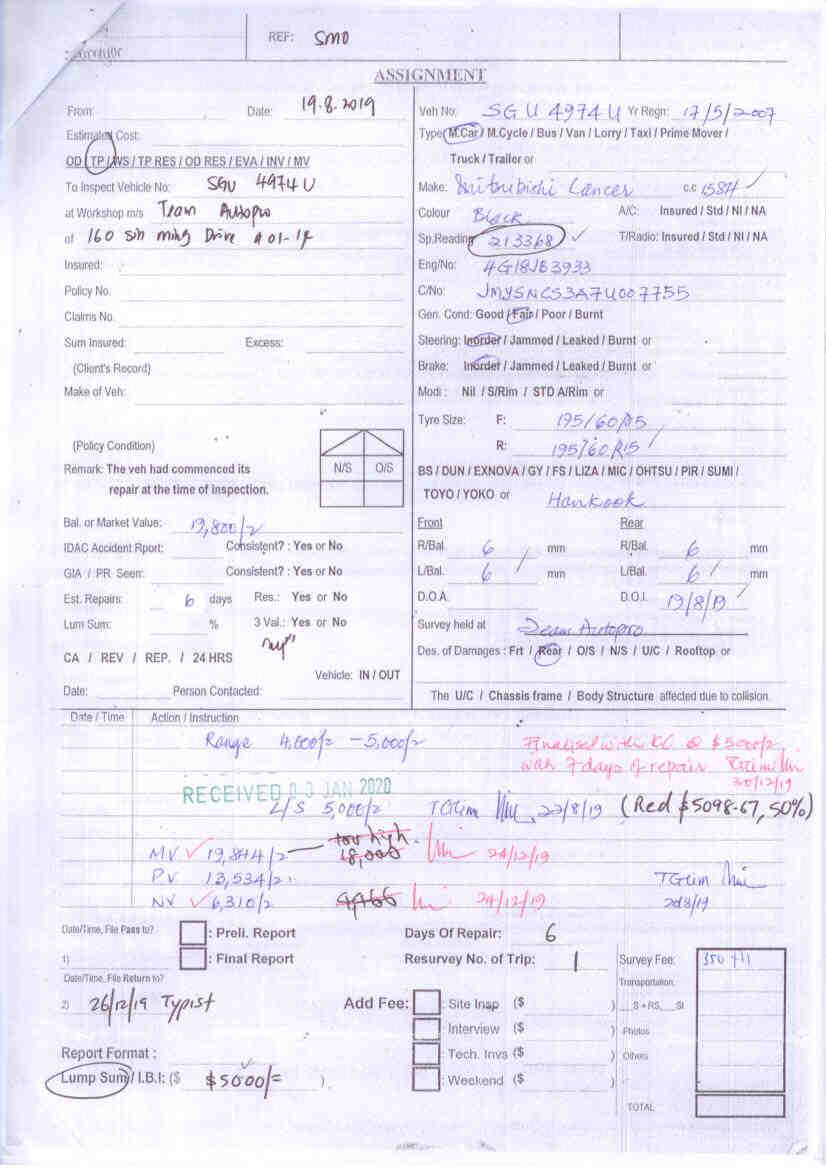 REF: SMO
ASSIGNMENT
From: Date: 19.8.2019
Estimated Cost:
OD / TP / WS / TP RES / OD RES / EVA / INV / MV
To Inspect Vehicle No: SGU 4974 U
at Workshop m/s Team Autopro
of 160 Sin Ming Drive #01-14
Insured:
Policy No.
Claims No.
Sum Insured: Excess:
(Client's Record)
Make of Veh:
(Policy Condition)
N/S O/S
Remark: The veh had commenced its
repair at the time of inspection.
Bal. or Market Value: 19,800/2
IDAC Accident Rport: Consistent? : Yes or No
GIA / PR Seen: Consistent? : Yes or No
Est. Repairs: 6 days Res.: Yes or No
Lum Sum: % 3 Val.: Yes or No
CA / REV / REP. / 24 HRS
Vehicle: IN / OUT
Date: Person Contacted:
Veh No: SGU 4974 U Yr Regn: 17/5/2007
Type: M.Car / M.Cycle / Bus / Van / Lorry / Taxi / Prime Mover /
Truck / Trailer or
Make: Mitsubichi Lancer c.c 1584
Colour Black A/C: Insured / Std / NI / NA
Sp.Reading 213368 T/Radio: Insured / Std / NI / NA
Eng/No: 4G18JE3933
C/No: JMYSNCS3A7U007755
Gen. Cond: Good / Fair / Poor / Burnt
Steering: Inorder / Jammed / Leaked / Burnt or
Brake: Inorder / Jammed / Leaked / Burnt or
Modi : Nil / S/Rim / STD A/Rim or
Tyre Size: F: 195/60R15
R: 195/60R15
BS / DUN / EXNOVA / GY / FS / LIZA / MIC / OHTSU / PIR / SUMI /
TOYO / YOKO or Hankook
Front Rear
R/Bal. 6 mm R/Bal. 6 mm
L/Bal. 6 mm L/Bal. 6 mm
D.O.A. D.O.I. 19/8/19
Survey held at Team Autopro
Des. of Damages : Frt / Rear / O/S / N/S / U/C / Rooftop or
The U/C / Chassis frame / Body Structure affected due to collision.
Date / Time Action / Instruction
Range 4,000/2 - 5,000/2
Finalised with KC @ $5000/2
with 7 days of repair
30/12/19
RECEIVED 03 JAN 2020
L/S 5,000/2 22/8/19 (Red $5098-67, 50%)
too high.
MV 19,844/2 18,000 24/12/19
PV 13,534/2
NV 6,310/2 4,466 24/12/19
Date/Time, File Pass to?
: Preli. Report Days Of Repair: 6
1) : Final Report Resurvey No. of Trip: 1
Date/Time, File Return to?
2) 26/12/19 Typist
Add Fee: : Site Insp ($ )
: Interview ($ )
: Tech. Invs ($ )
: Weekend ($ )
Report Format :
Lump Sum / I.B.I: ($ $5000/= )
Survey Fee:
Transportation:
S + RS. SI
Photos
Others
TOTAL